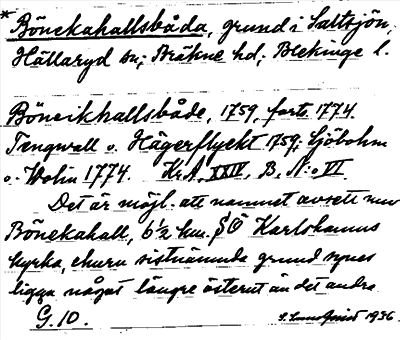 * Bönekahallsbåda, grund i Saltsjön,
Hällaryd sn; Bräkne hd; Blekinge l.
Böneikhallsbåde, 1759, forts. 1774.
Tengwall o. Hägerflyckt 1759; Sjöbohm
o. Wolin 1774. Kr.A. XXIV, B, N:o VI
Det är möjl. att namnet avsett nuv
Bönekahall, 6½ hm. SÖ Karlshamns
kyrka, ehuru sistnämnda grund synes
ligga något längre österut än det andra
G. 10. 1936